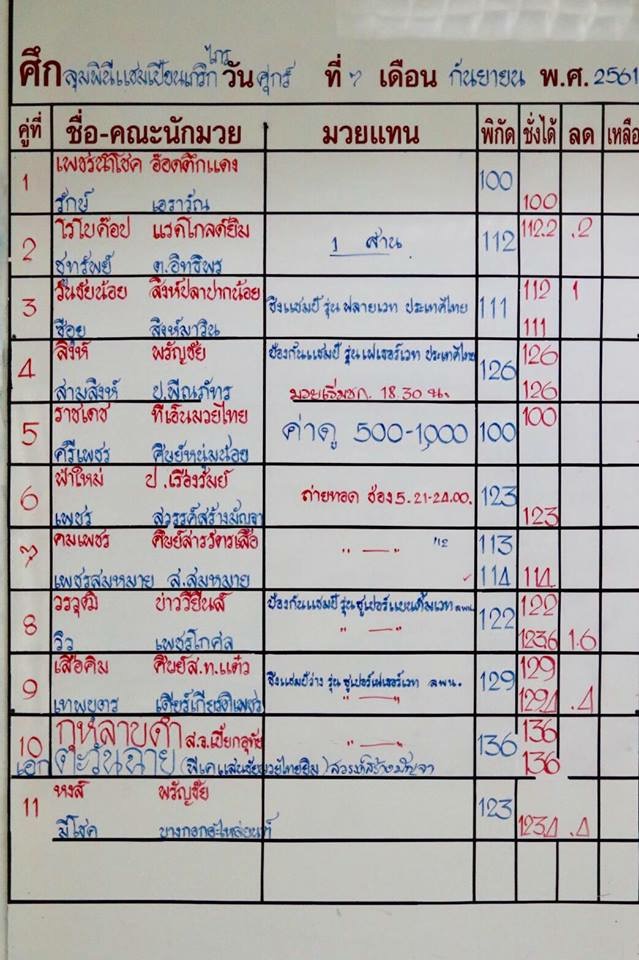 ไกร
ศึก ลุมพินีแชมเปี้ยนเกริก วัน ศุกร์ ที่ 7 เดือน กันยายน พ.ศ. 2561
คู่ที่ ชื่อ-คณะนักมวย มวยแทน พิกัด ชั่งได้ ลด เหลือ
1 เพชรนำโชค อ๊อดตึกแดง 100
รักษ์ เอราวัณ 100
2 โรโบค๊อป แรคโกลด์ยิม 1 ส่าน 112 112.2 .2
ชูทรัพย์ ต.อิทธิพร
3 วันชัยน้อย สิงห์ปลาปากน้อย ชิงแชมป์ รุ่น ฟลายเวท ประเทศไทย 111 112 1
ช๊อย สิงห์มาวิน 111
4 สิงห์ พรัญชัย ป้องกันแชมป์ รุ่น เฟเธอร์เวท ประเทศไทย 126 126
สามสิงห์ ป.พีณภัทร มวยเริ่มชก. 18.30 น. 126
5 ราชเดช ทีเอ็นมวยไทย ค่าดู 500-1,000 100 100
ศรีเพชร ศิษย์หนุ่มน้อย
6 ฟ้าใหม่ ป.เรืองรัมย์ ถ่ายทอด ช่อง 5. 21-24.00. 123
เพชร สวรรค์สร้างมัญจา 123
7 คมเพชร ศิษย์สารวัตรเสือ " — " 112 113
เพชรสมหมาย ส.สมหมาย 114 114
8 วรวุฒิ ป้องกันแชมป์ รุ่น ซูเปอร์แบนตั้มเวท ลพน. 122 122
วิว เพชรโกศล " — " 123.6 1.6
9 เสือคิม ศิษย์ส.ท.แต๋ว ชิงแชมป์ว่าง รุ่น ซูเปอร์เฟเธอร์เวท ลพน. 129 129
เทพบุตร เดียร์เกียรติเพชร " — " 129.4 .4
10 กุหลาบดำ ส.จ.เปี๊ยกอุทัย " — " 136 136
เอก ตะวันฉาย (พีเคแสนชัยมวยไทยยิม) สวรรค์สร้างมัญจา 136
11 หงส์ พรัญชัย 123
มีโชค บางกอกอะไหล่ยนต์ 123.4 .4